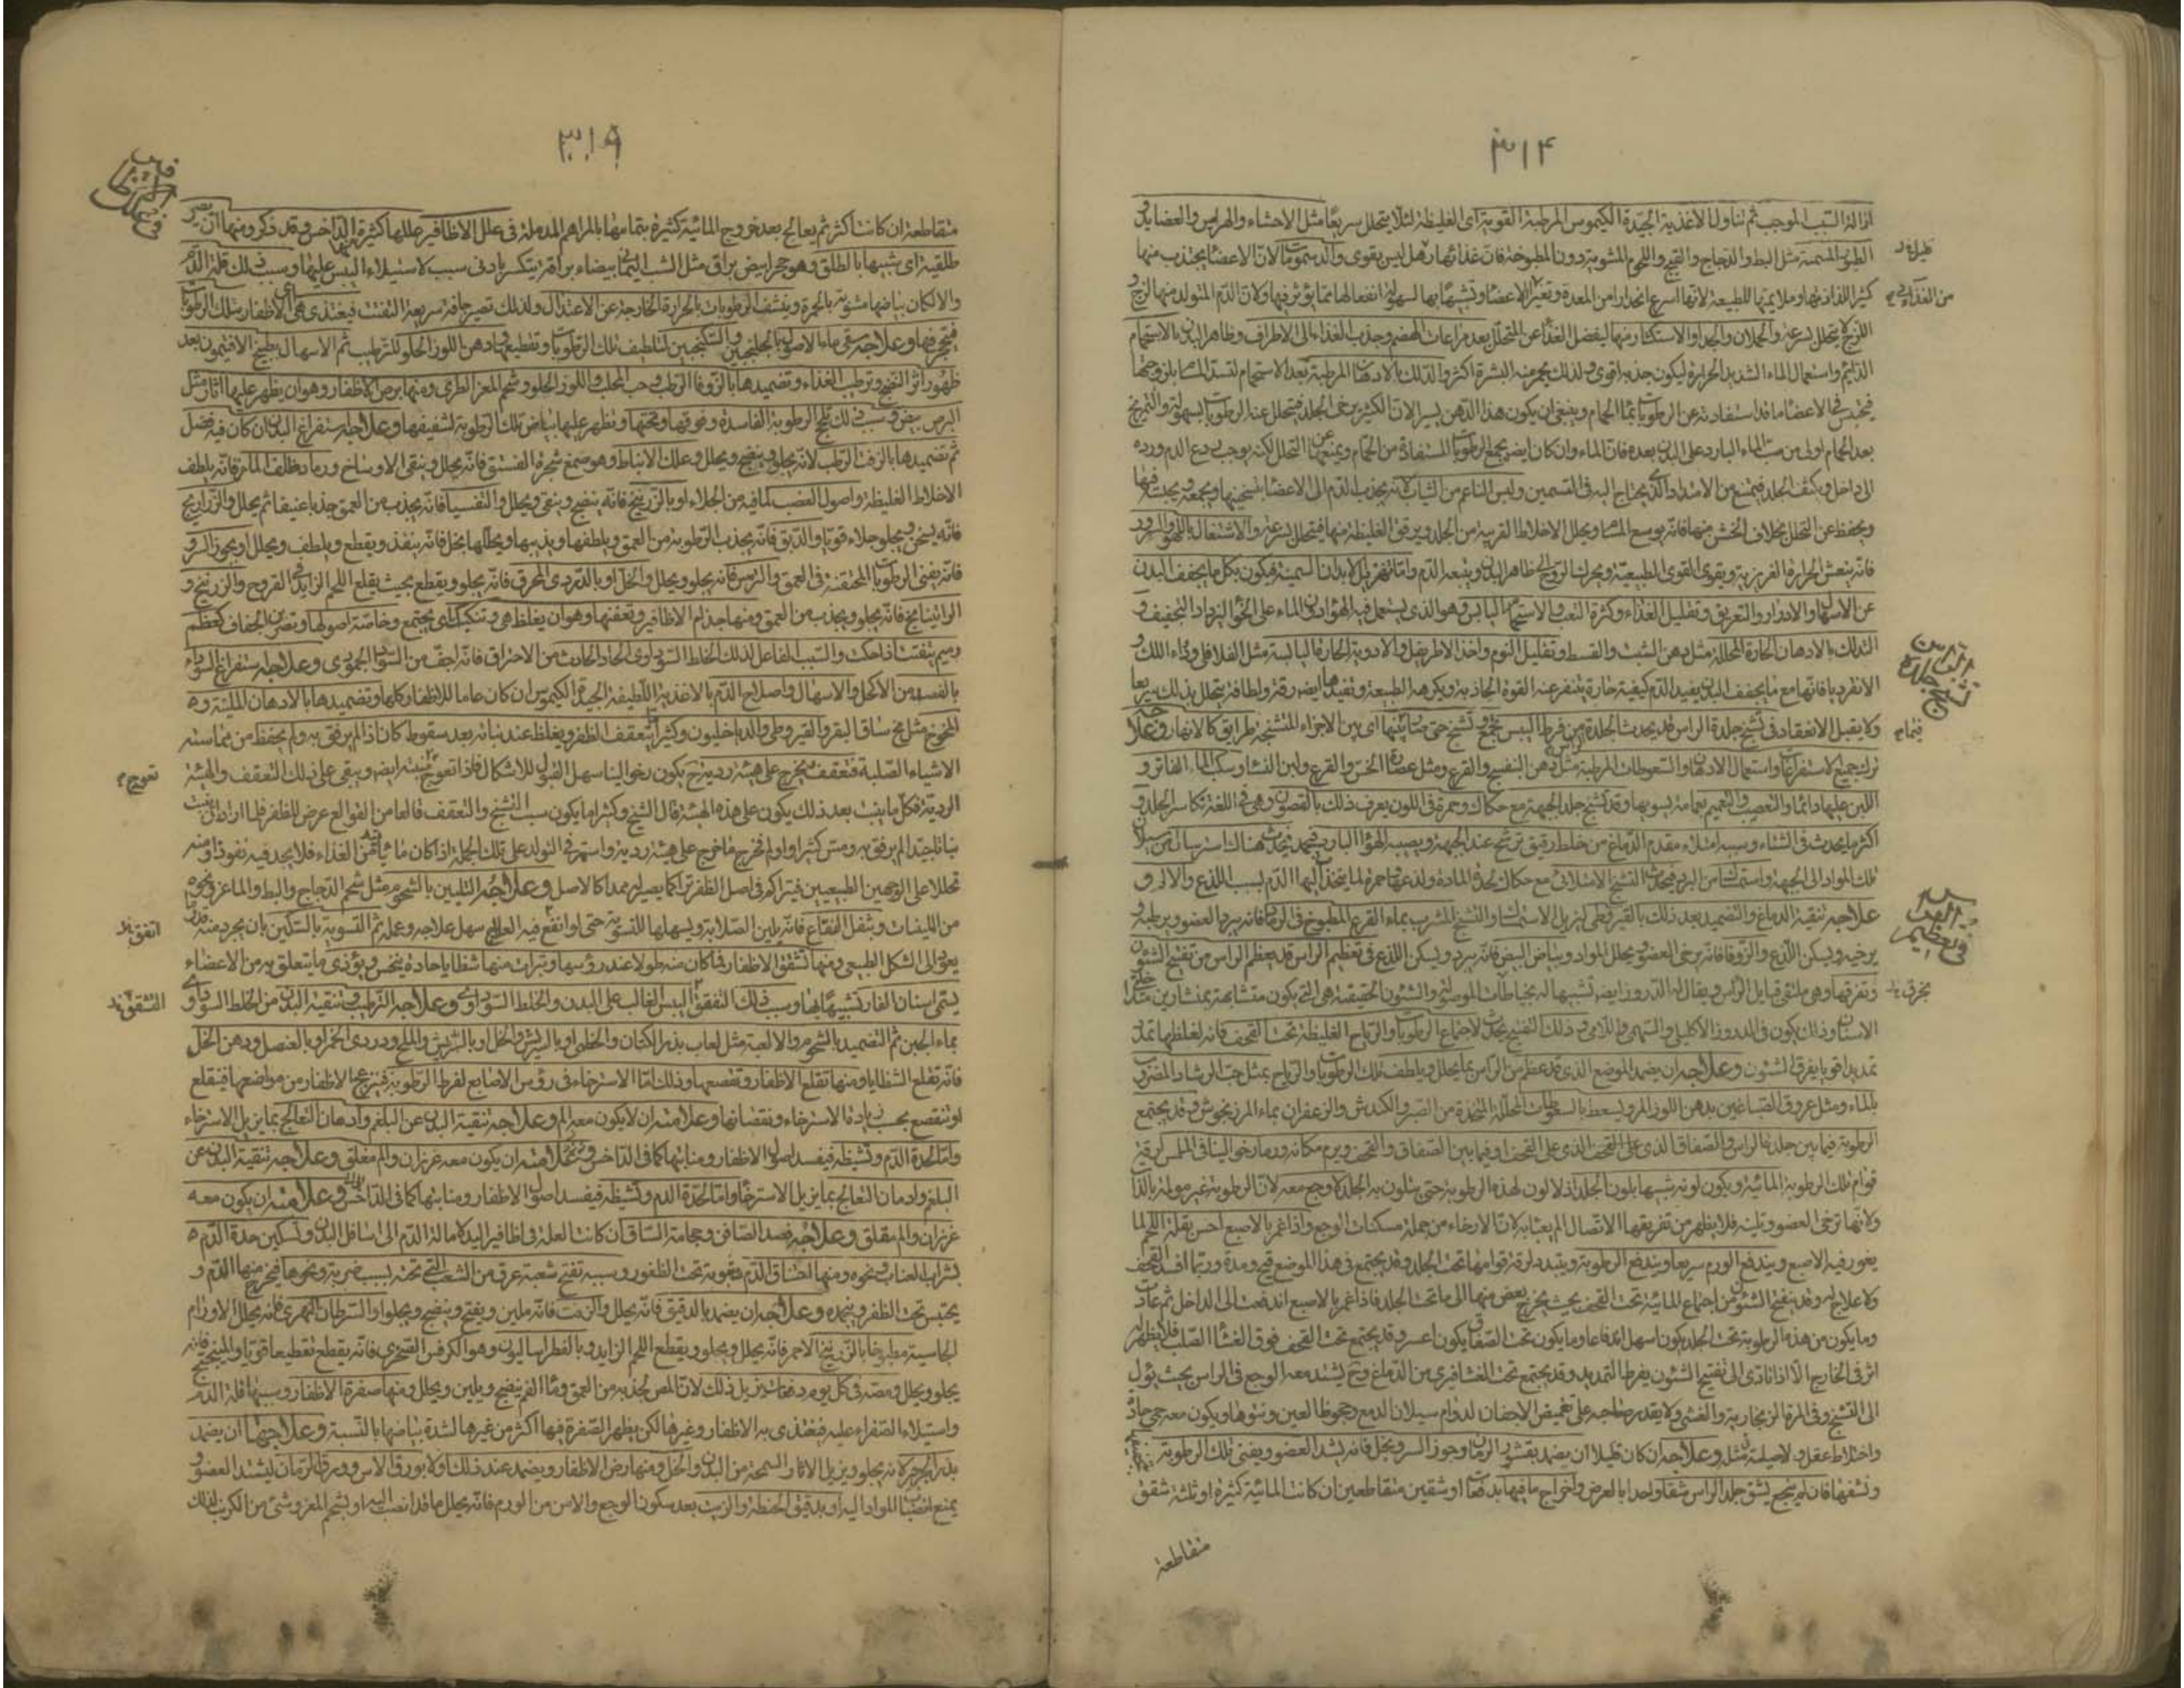 ٣١۴
ازالة السبب الموجب ثم تناول الاغذية الجيدة الكيموس المرطبة القوية اى الغليظة لئلا يتحلل سريعا مثل الاحشاء والهرايس والعصايد و
الطيور المسمنة مثل البط والدجاج والقبج واللحوم المشوية دون المطبوخة فان غذائها رهل ليس بقوى والدسومات لان الاعضا يجتذب منها
كثيرا للذاذتها وملايمتها للطبيعة لانها اسرع انحدارا من المعدة وتغير الاعضا وتشبهها بها لسهولة انفعالها مما يؤثر فيها ولان الدم المتولد منها لزج و
اللزج لا يتحلل بسرعة والحملان والجدا والاستكثار منها ليفضل الغذا عن المتحلل بعد مراعات الهضم وجذب الغذاء الى الاطراف وظاهر البدن بالاستحمام
الدايم واستعمال الماء الشديد الحرارة ليكون جذبه اقوى ولذلك يحمر منه البشرة اكثر والدلك بالادهان المرطبة بعد الاستحمام لتسد المسام بلزوجتها
فيحتبس فى الاعضا ما قد استفادته عن الرطوبات بماء الحمام وينبغى ان يكون هذا الدهن يسيرا لان الكثير يرخى الجلد فيتحلل عنه الرطوبات بسهولة والتمريخ
بعد الحمام اولى من صب الماء البارد على البدن بعده فان الماء وان كان ايضا يجمع الرطوبات المستفادة من الحمام ويمنعها عن التحلل لكنه يوجب ردع الدم ورده
الى داخل وتكثف الجلد فيمتنع من الامتداد الذى يحتاج اليه فى التسمين ولبس الناعم من الثياب لانه يجذب الدم الى الاعضا بتسخينها ويجمعه ويحبسه فيها
ويحفظ عن التحلل بخلاف الخشن منها فانه يوسع المسام ويحلل الاخلاط القريبة من الجلد ويرقق الغليظة منها فيتحلل بسرعة والاشتغال باللهو والسرور
فانه ينعش الحرارة الغريزية ويقوى القوى الطبيعية ويحرك الروح الى ظاهر البدن ويتبعه الدم واما تهزيل الابدان السمينة فيكون بكل ما يجفف البدن
عن الاسهال والادرار والتعريق وتقليل الغذاء وكثرة التعب والاستحمام اليابس وهو الذى يستعمل فيه الهواء دون الماء على الخوا ليزداد التجفيف و
التدلك بالادهان الحارة المحللة مثل دهن الشبت والقسط وتقليل النوم واخذ الاطريفل والادوية الحارة اليابسة مثل الفلافلى ودواء اللك و
الانقرديا فانها مع ما يجفف البدن يفيد الدم كيفية حارة يتنفر عنه القوة الجاذبة ويكرهه الطبيعة وتفيدها ايضا رقة ولطافة يتحلل بذلك سريعا
ولا يقبل الانعقاد فى تشنج جلدة الراس قد يحدث الجلدة من فرط اليبس تجمع وتشنج حتى يتباين بينها اى بين الاجزاء المتشنجة طرايق كالانهار وعلاجه
ترك جميع الاستفراغات واستعمال الادهان والسعوطات المرطبة مثل دهن البنفسج والقرع ومثل عصارة الخس والقرع ولبن النساء وسكب الماء الفاتر و
اللبن عليها دائما والتعصيب والتعميم بعمامة يسويها وقد تشنج جلد الجبهة مع حكاك وحمرة فى اللون يعرف ذلك بالغضون وهى فى اللغة تكاسر الجلد و
اكثر ما يحدث فى الشتاء وسببه امتلاء مقدم الدماغ من خلط رقيق ترشح عند الجبهة ويصيبه الهواء البارد فيجمد فيحدث هناك استرسال من سيلان
تلك المواد الى الجبهة واستمساك من البرد فيحدث التشنج الامتلائى مع حكاك لحدة المادة ولذعها وحمرة لما ينجذب اليها الدم بسبب اللذع والالم و
علاجه تنقية الدماغ والتضميد بعد ذلك بالقيروطى ليزيل الاستمساك والتشنج المشرب بماء القرع المطبوخ فى الرماد فانه يبرد العضو ويرطبه و
يرخيه ويسكن اللذع والزوفا فانه يرخى العضو ويحلل المواد وبياض البيض فانه يبرد ويسكن اللذع فى تعظيم الراس قد يعظم الراس من تفتح الشئون
وتفرقها وهى ملتقى قبايل الراس ويقال لها الدروز ايضا تشبيها له بخياطات الموصلة والشئون الحقيقية هى التى يكون متشابهة بمنشارين متداخلى
الاسنان وذلك يكون فى الدروز الاكليلى والسهمى واللامى وذلك التفتح يحدث لاجتماع الرطوبات والرياح الغليظة تحت القحف فانه لغلظها تمدد
تمديدا قويا يفرق الشئون وعلاجه ان يضمد الموضع الذى قد عظم من الراس بما يحلل ويلطف تلك الرطوبات والرياح بمثل حب الرشاد المضروب
بالماء ومثل عروق الصباغين بدهن اللوز المر ويسعط بالسعوطات المحللة المتخذة من الصبر والكندش والزعفران بماء المرزنجوش وقد يجتمع
الرطوبة فيما بين جلدة الراس والصفاق الذى على القحف الذى على القحف او فيما بين الصفاق والقحف ويرم مكانه ورما رخوا لينا فى الملمس لرقة
قوام تلك الرطوبة المائية ويكون لونه شبيها بلون الجلد اذ لا لون لهذه الرطوبة حتى يتلون به الجلد لا وجع معه لان الرطوبة غير مولمة بالذات
ولانها ترخى العضو وتلينه فلا يظهر من تفريقها الاتصال الم يعتد به لان الارخاء من جملة مسكنات الوجع واذا غمز بالاصبع احس بقلة اللحم لما
يغور فيه الاصبع ويندفع الورم سريعا ويندفع الرطوبة ويتبدد لرقة قوامها تحت الجلد وقد يجتمع فى هذا الموضع قيح ومدة وربما افسد القحف
ولا علاج له وقد تفتح الشئون من اجتماع المائية تحت القحف بحيث يخرج بعض منها الى ما تحت الجلد فاذا غمز بالاصبع اندفعت الى الداخل ثم عادت
وما يكون من هذه الرطوبة تحت الجلد يكون اسهل اندفاعا وما يكون تحت الصفاق يكون اعسر وقد يجتمع تحت القحف فوق الغشا الصلب فلا يظهر له
اثر فى الخارج الا اذا تادى الى تفتيح الشئون بفرط التمديد وقد يجتمع تحت الغشا قريبا من الدماغ وح يشتد معه الوجع فى الراس بحيث يؤل
الى التشنج وقئ المرة الزنجارية والغشى ولا يقدر صاحبه على تغميض الاجفان لدوام سيلان الدمع وجحوظ العين ونتوها ويكون معه حمى حادة
واختلاط عقل ولا حيلة فى مثله وعلاجه ان كان قليلا ان يضمد بقشور الرمان وجوز السرو بخل فانه يشد العضو ويفنى تلك الرطوبة
وتنشفها فان لم ينجع يشق جلد الراس شقا واحدا بالعرض واخراج ما فيها بدفعات او شقين متقاطعين ان كانت المائية كثيرة او ثلثة شقوق
متقاطعة
من الغذاء
تشنج جلدة الراس
فى تعظيم الراس
٣١٥
متقاطعة ان كانت اكثر ثم يعالج بعد خروج المائية كثيرة بتمامها بالمراهم المدملة فى علل الاظافير عللها كثيرة الداخس وقد ذكر ومنها ان تصير
طلقية اى شبيها بالطلق وهو حجر ابيض براق مثل الشب اليمانى بيضاء براقة يتكسر بادنى سبب لاستيلاء اليبس عليها وسبب ذلك قلة الدم
والا لكان بياضها مشوبة بالحمرة وينشف الرطوبات بالحرارة الخارجة عن الاعتدال ولذلك تصير جافة سريعة التفتت فيغتذى هى اى الاظفار بتلك الرطوبات
فيتحجر فيها وعلاجه سقى ماء الاصول بالجلنجبين والسكنجبين لتلطيف تلك الرطوبات وتقطيعها ودهن اللوز الحلو للترطيب ثم الاسهال بطبيخ الافتيمون بعد
ظهور اثر النضج وترطيب الغذاء وتضميدها بالزوفا الرطب وحب المحلب واللوز الحلو وشحم المعز الطرى ومنها برص الاظفار وهو ان يظهر عليها اثار مثل
البرص بيض وسبب ذلك تلج الرطوبة الفاسدة وفوقها وتحتها وتظهر عليها بياض تلك الرطوبة لشفيفها وعلاجه استفراغ البدن ان كان فيه فضل
ثم تضميدها بالزفت الرطب لانه يجلو وينضج ويحلل وعلك الانباط وهو صمغ شجرة الفستق فانه يحلل وينقى الاوساخ ورماد ظلف الماعز فانه يلطف
الاخلاط الغليظة واصول القصب لما فيه من الجلاء او بالزرنيخ فانه ينضج وينقى ويحلل والتفسيا فانه يجذب من العمق جذبا عنيفا ثم يحلل والذراريح
فانه يسخن ويجلو جلاء قويا والدبق فانه يجذب الرطوبة من العمق ويلطفها ويذيبها ويحللها بخل فانه ينفذ ويقطع ويلطف ويحلل او بجوز السرو
فانه يفنى الرطوبات المحتقنة فى العمق والترمس فانه يجلو ويحلل والخل او بالدردى المحرق فانه يجلو ويقطع بحيث يقلع اللحم الزايد فى القروح والزرنيخ و
الراتينج فانه يجلو ويجذب من العمق ومنها جذام الاظافير وتعقفها وهو ان يغلظ هى وتنكبب اى يجتمع وخاصة اصولها وتصير من الجفاف كعظم
رميم يتفتت اذا حكت والسبب الفاعل لذلك الخلط السوداوى الحاد الحادث من الاحتراق فانه اجف من السوداء الجمودى وعلاجه استفراغ السوداء
بالفصد من الاكحل والاسهال واصلاح الدم بالاغذية اللطيفة الجيدة الكيموس ان كان عاما للاظفار كلها وتضميدها بالادهان الملينة و
المخوخ مثل مخ ساق البقر والقيروطى والدياخليون وكثيرا ما يتعقف الظفر ويغلظ عند نباته بعد سقوط كان اذا لم يرفق به ولم يحفظ من مماسة
الاشياء الصلبة فتعقف يخرج على هيئة ردية ح يكون رخوا لينا سهل القبول للاشكال فاذا تعوج ابيضه ويبقى على ذلك التعقف والهيئة
الردية فكلما ينبت بعد ذلك يكون على هذه الهيئة قال الشيخ وكثيرا ما يكون سبب التشنج والتعقف قالعا من القوالع عرض للظفر فلما اراد ان ينبت
نباتا جيدا لم يرفق به ومس كثيرا والم فخرج ما خرج على هيئة ردية واستمر فى التولد على تلك الجملة اذا كان ما ياتيه من الغذاء فلا يجد فيه نفوذا ومنه
تحللا على الوجهين الطبيعيين فيتراكم فى اصل الظفر تراكما يصير له ممدا كالاصل وعلاجه التليين بالشحوم مثل شحم الدجاج والبط والماعز ونحوه
من اللينات وبثفل الفقاع فانه يلين الصلابة ويسهلها للتسوية حتى اذا انقع فيه العليل سهل علاجه وعمله ثم التسوية بالسكين بان يجرد منه
يعود الى الشكل الطبيعى ومنها تشقق الاظفار فما كان منه طولا عند رؤسها وتبرات منها شظايا حادة ينخس ويؤذى ما يتعلق به من الاعضاء
يسمى اسنان الفار تشبيها بها وسبب ذلك التشقق اليبس الغالب على البدن والخلط السوداوى وعلاجه الترطيب وتنقية البدن من الخلط السوداوى
بماء الجبن ثم التضميد بالشحوم والالعبة مثل لعاب بذر الكتان والخطمى او بالسريش والخل او بالسريش والملح ودردى الخمر او بالعنصل ودهن الخل
فانه تقلع الشظايا ومنها تقلع الاظفار وتقصعها وذلك اما الاسترخاء فى رؤس الاصابع لفرط الرطوبة فينزعج الاظفار من مواضعها فتنقلع
او تنقصع بحسب زيادة الاسترخاء ونقصانها وعلامته ان لا يكون معه الم وعلاجه تنقية البدن عن البلغم وادهان التعالج بما يزيل الاسترخاء
واما لحدة الدم وتشيظه فيفسد اصول الاظفار ومنابتها كما فى الداخس وعلامته ان يكون معه غرزان والم مقلق وعلاجه تنقية البدن عن
البلغم وادمان التعالج بما يزيل الاسترخا واما لحدة الدم وتشيظه فيفسد اصول الاظفار ومنابتها كما فى الداخس وعلامته ان يكون معه
غرزان والم مقلق وعلاجه فصد الصافن وحجامة الساق ان كانت العلة فى اظافير اليد لامالة الدم الى اسافل البدن وتسكين حدة الدم
بشراب العناب ونحوه ومنها اختناق الدم وموته تحت الظفور وسببه تفتح شعبة عرق من الشعب التى تحته بسبب ضربة ونحوها فيخرج منها الدم و
يحتبس تحت الظفر وينجمد وعلاجه ان يضمد بالدقيق فانه يحلل والزفت فانه ملين ويفتح وينضج ويجلو او السرطان النهرى فانه يحلل الاورام
الجاسية مطبوخا بالزرنيخ الاحمر فانه يحلل ويجلو ويقطع اللحم الزايد وبالفطراساليون وهو الكرفس الصخرى فانه يقطع تقطيعا قويا والميبختج فانه
يجلو ويحلل ومصه فى كل يوم دفعات يزيل ذلك لان المص يجذبه من العمق وماء الفم ينضج ويلين ويحلل ومنها صفرة الاظفار وسببها قلة الدم
واستيلاء الصفراء عليه فيغتذى به الاظفار وغيرها لكن يظهر الصفرة فيها اكثر من غيرها لشدة بياضها بالنسبة وعلاجها ان يضمد
بذر الجرجير لانه يجلو ويزيل الاثار السمجة من البدن والخل ومنها رض الاظفار ويضمد عند ذلك اولا بورق الاس وورق الرمان ليشتد العضو و
يمنع انصباب المواد اليه او بدقيق الحنطة والزيت بعد سكون الوجع والامن من الورم فانه يحلل ما قد انصب اليه او بشحم المعز وشئ من الكبريت لذلك
تعوج
انقع
التشقق